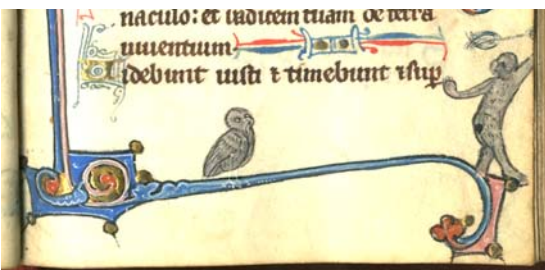 naculo: et radicem tuam de terra
uiuentium
Uidebunt iusti ⁊ timebunt ⁊ sup̱